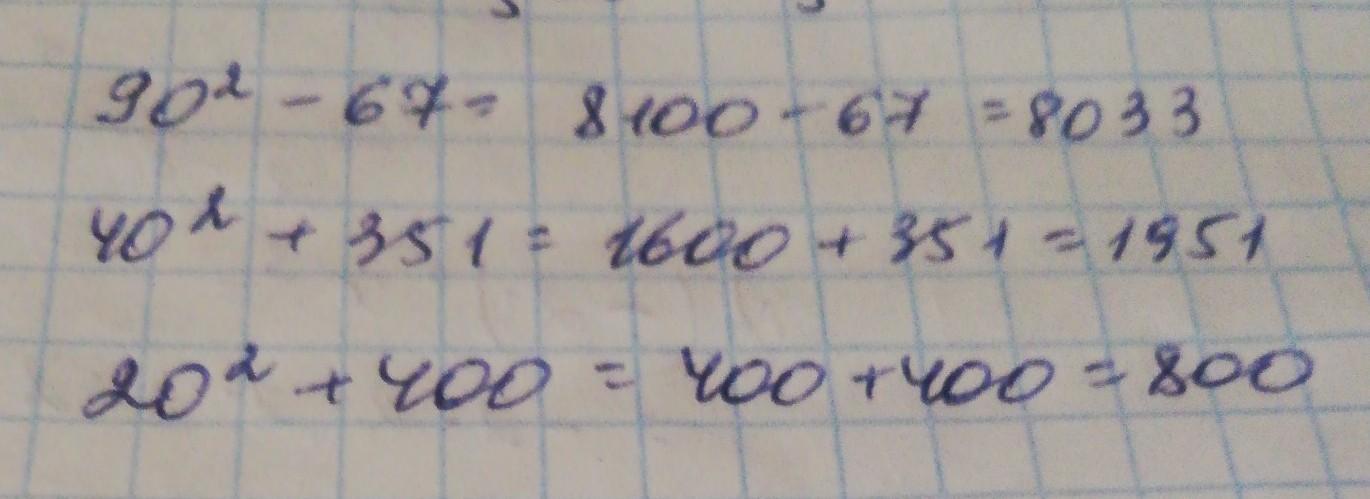 90² - 67 = 8100 - 67 = 8033
40² + 351 = 1600 + 351 = 1951
20² + 400 = 400 + 400 = 800